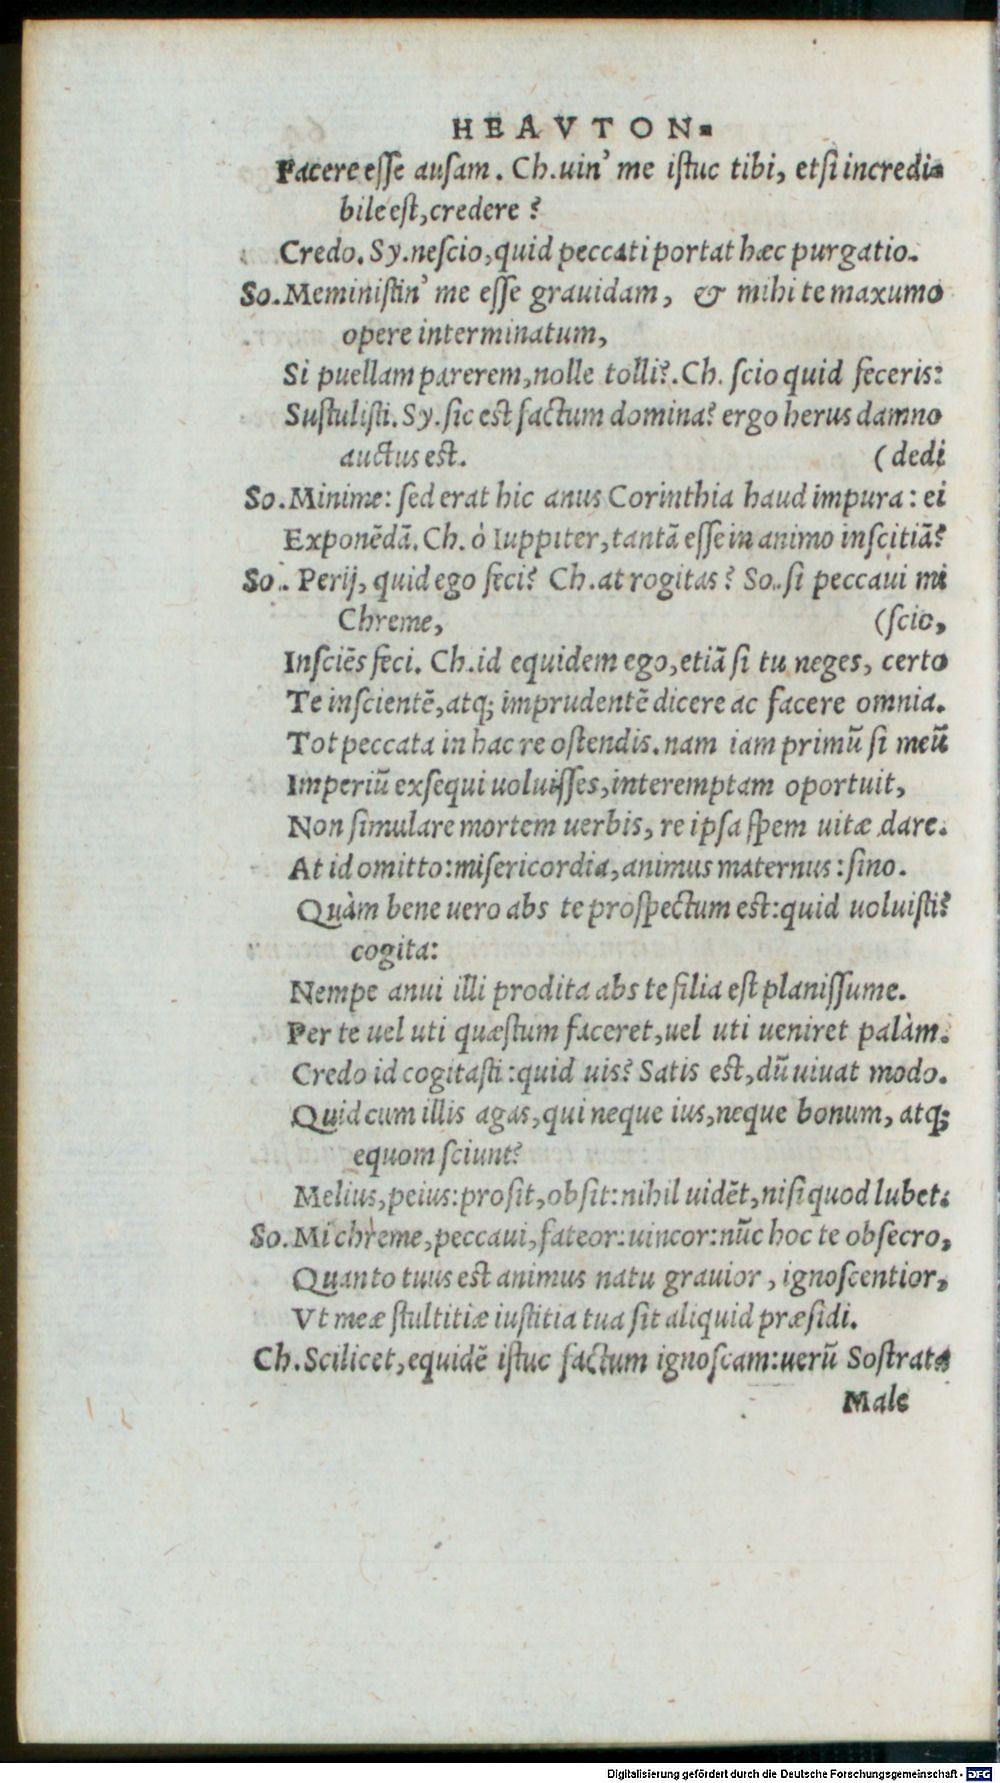 HEAVTON-
Facere esse ausam. Ch.uin' me istuc tibi, etsi incredi-
bile est,credere ?
Credo. Sy.nescio,quid peccati portat hæc purgatio.
So.Meministin' me esse grauidam, & mihi te maxumo
opere interminatum,
Si puellam parerem,nolle tolli?.Ch. scio quid feceris:
Sustulisti.Sy.sic est factum domina? ergo herus damno
auctus est. (dedi
So.Minime: sed erat hic anus Corinthia haud impura: ei
Exponēdā.Ch. ò Iuppiter,tantā esse in animo inscitiā?
So.. Perij, quid ego feci? Ch.at rogitas? So..si peccaui mi
Chreme, (scio,
Insciēs feci. Ch.id equidem ego,etiā si tu neges, certo
Te inscientē,atq; imprudentē dicere ac facere omnia.
Tot peccata in hac re ostendis.nam iam primū si meū
Imperiū exsequi uoluisses,interemptam oportuit,
Non simulare mortem uerbis, re ipsa spem uitæ dare.
At id omitto:misericordia,animus maternus:sino.
Quàm bene uero abs te prospectum est:quid uoluisti?
cogita:
Nempe anui illi prodita abs te filia est planissume.
Per te uel uti quæstum faceret,uel uti ueniret palàm.
Credo id cogitasti:quid uis? Satis est,dū uiuat modo.
Quid cum illis agas,qui neque ius,neque bonum, atq;
equom sciunt?
Melius,peius:prosit,obsit:nihil uidēt,nisi quod lubet.
So.Mi chreme,peccaui,fateor:uincor:nūc hoc te obsecro,
Quanto tuus est animus natu grauior, ignoscentior,
Vt meæ stultitiæ iustitia tua sit aliquid præsidi.
Ch.Scilicet,equidē istuc factum ignoscam:uerū Sostrata
Male
Digitalisierung gefördert durch die Deutsche Forschungsgemeinschaft - DFG